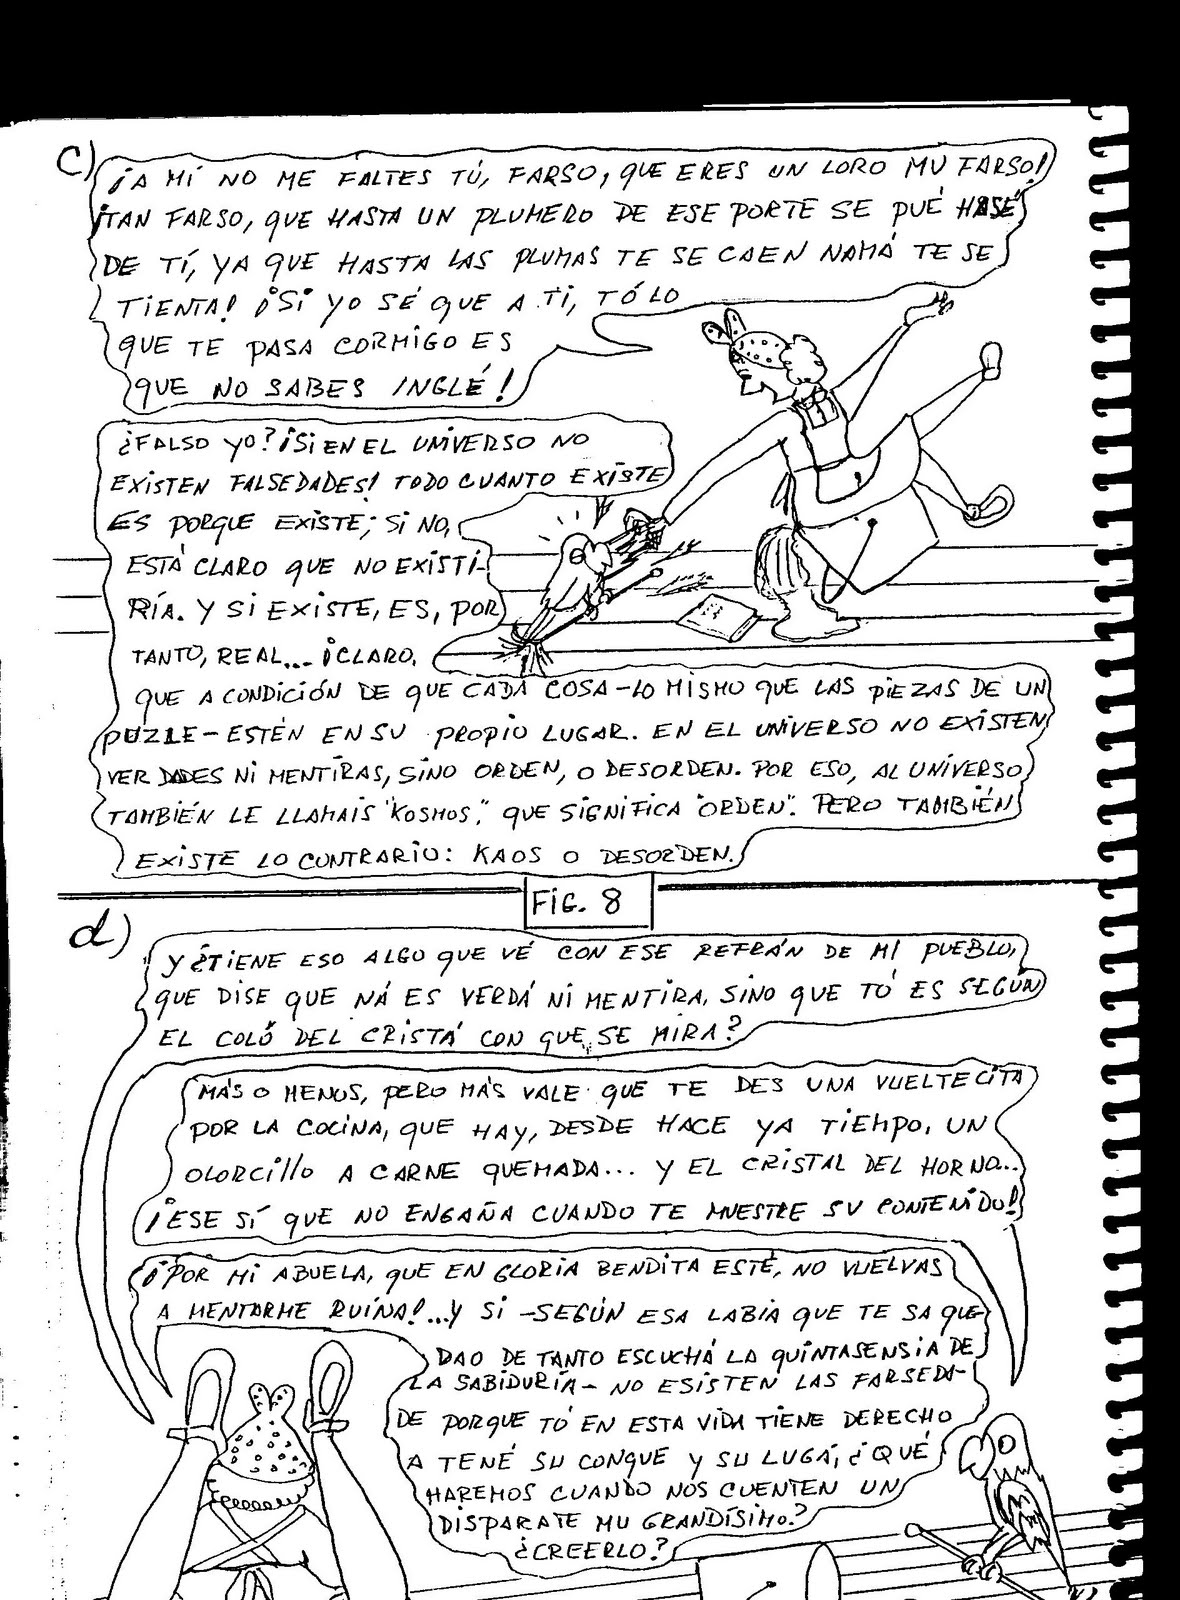 c)
¡A MÍ NO ME FALTES TÚ, FARSO, QUE ERES UN LORO MU FARSO!
¡TAN FARSO, QUE HASTA UN PLUMERO DE ESE PORTE SE PUÉ HASÉ
DE TÍ, YA QUE HASTA LAS PLUMAS TE SE CAEN NAMÁ TE SE
TIENTA! ¡SI YO SÉ QUE A TI, TÓ LO
QUE TE PASA CORMIGO ES
QUE NO SABES INGLÉ!
¿FALSO YO? ¡SI EN EL UNIVERSO NO
EXISTEN FALSEDADES! TODO CUANTO EXISTE
ES PORQUE EXISTE; SI NO,
ESTÁ CLARO QUE NO EXISTI-
RÍA. Y SI EXISTE, ES, POR
TANTO, REAL... ¡CLARO,
QUE A CONDICIÓN DE QUE CADA COSA-LO MISMO QUE LAS PIEZAS DE UN
PUZLE-ESTÉN EN SU PROPIO LUGAR. EN EL UNIVERSO NO EXISTEN
VERDADES NI MENTIRAS, SINO ORDEN, O DESORDEN. POR ESO, AL UNIVERSO
TAMBIÉN LE LLAMAIS "KOSMOS", QUE SIGNIFICA "ORDEN". PERO TAMBIÉN
EXISTE LO CONTRARIO: KAOS O DESORDEN.
FIG. 8
d)
Y ¿TIENE ESO ALGO QUE VÉ CON ESE REFRÁN DE MI PUEBLO,
QUE DISE QUE NÁ ES VERDÁ NI MENTIRA, SINO QUE TÓ ES SEGÚN
EL COLÓ DEL CRISTÁ CON QUE SE MIRA?
MÁS O MENOS, PERO MÁS VALE QUE TE DES UNA VUELTECITA
POR LA COCINA, QUE HAY, DESDE HACE YA TIEMPO, UN
OLORCILLO A CARNE QUEMADA... Y EL CRISTAL DEL HORNO...
¡ESE SÍ QUE NO ENGAÑA CUANDO TE MUESTRE SU CONTENIDO!
¡POR MI ABUELA, QUE EN GLORIA BENDITA ESTÉ, NO VUELVAS
A MENTARME RUINA!...Y SI -SEGÚN ESA LABIA QUE TE SA QUE-
DAO DE TANTO ESCUCHÁ LA QUINTASENSIA DE
LA SABIDURÍA- NO ESISTEN LAS FARSEDA-
DE PORQUE TÓ EN ESTA VIDA TIENE DERECHO
A TENÉ SU CONQUE Y SU LUGÁ, ¿QUÉ
HAREMOS CUANDO NOS CUENTEN UN
DISPARATE MU GRANDÍSIMO?
¿CREERLO?